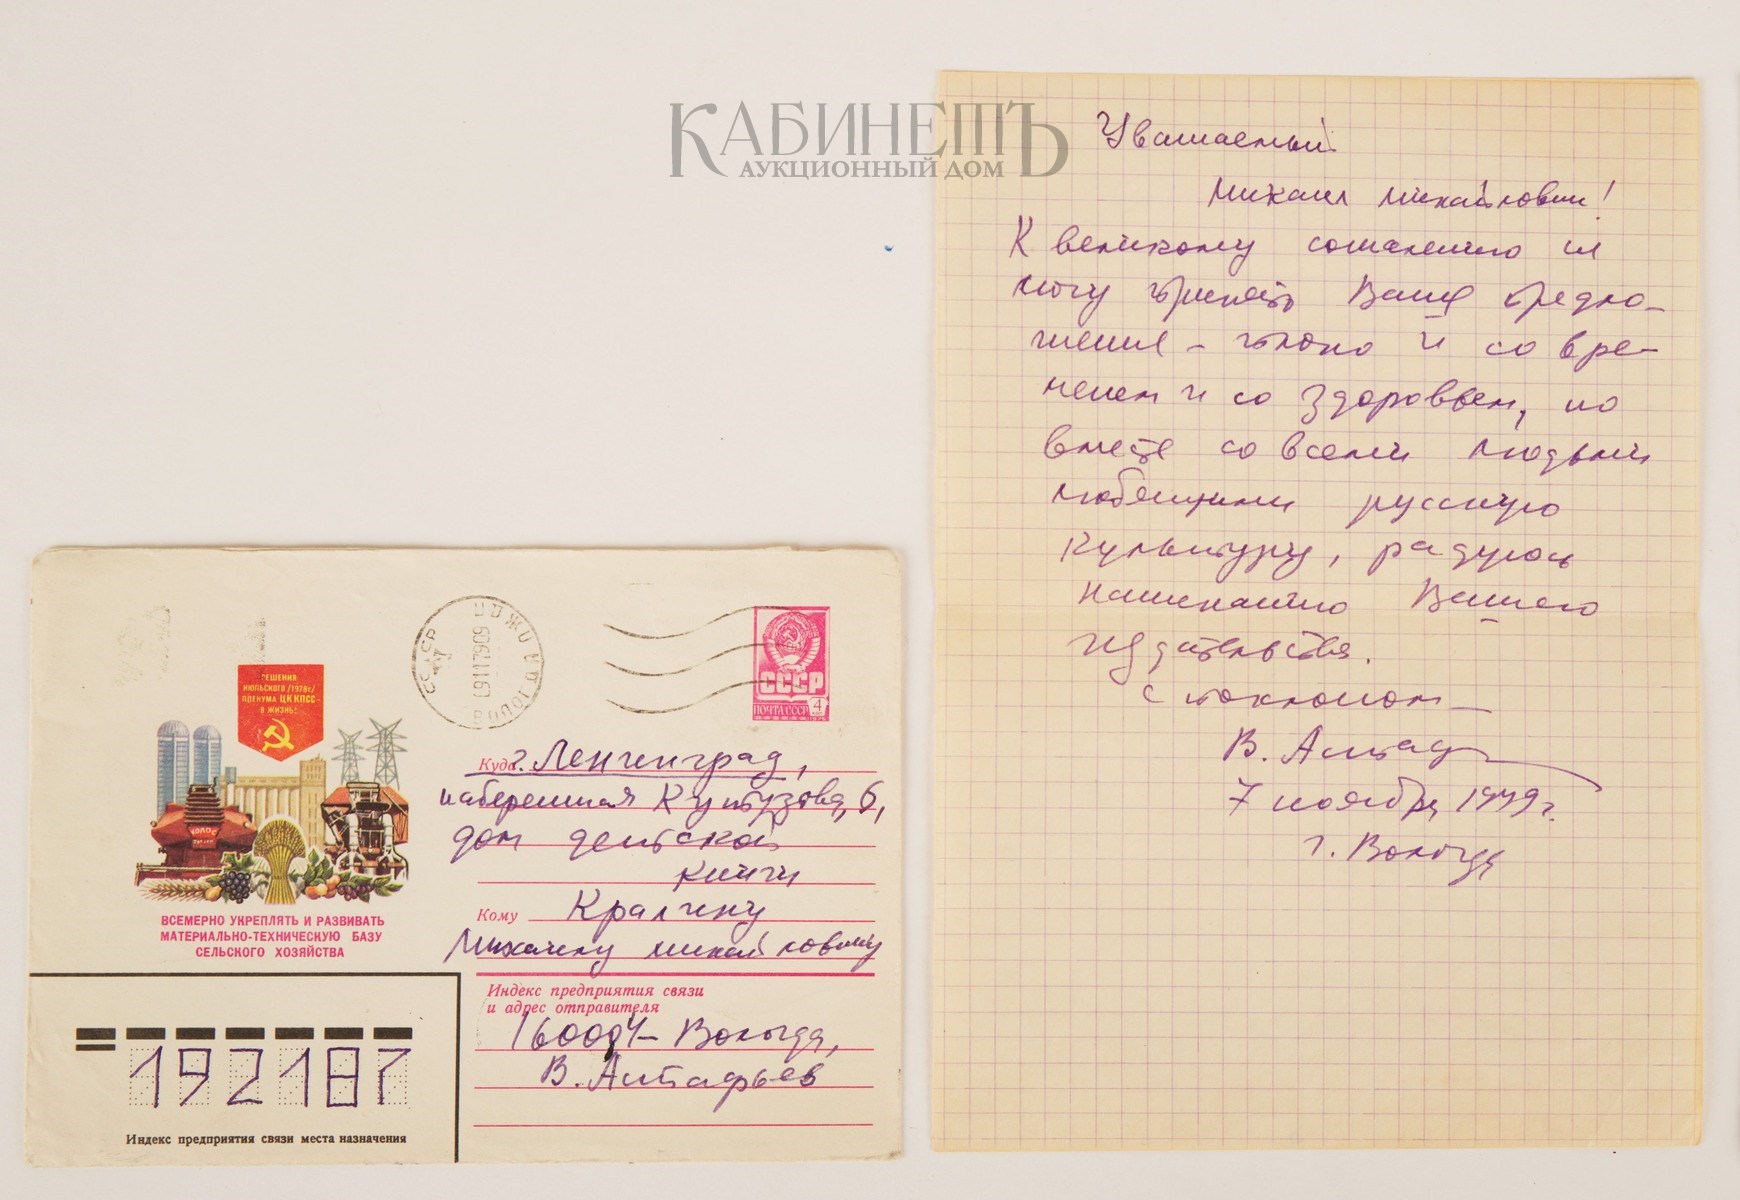 КАБИНЕТЪ
АУКЦИОННЫЙ ДОМ
Уважаемый
Михаил Михайлович!
К великому сожалению не
могу принять Ваше предло-
жение – плохо и со вре-
менем и со здоровьем, но
вместе со всеми людьми
любящими русскую
культуру, радуюсь
начинанию Вашего
издательства.
С поклоном
В. Астаф
7 ноября 1979 г.
г. Вологда
РЕШЕНИЯ
ИЮЛЬСКОГО /1978г/
ПЛЕНУМА ЦК КПСС-
В ЖИЗНЬ!
КОЛОС
ВСЕМЕРНО УКРЕПЛЯТЬ И РАЗВИВАТЬ
МАТЕРИАЛЬНО-ТЕХНИЧЕСКУЮ БАЗУ
СЕЛЬСКОГО ХОЗЯЙСТВА
СССР
СССР
ПОЧТА СССР 4
1976
Куда г. Ленинград,
набережная Кутузова, 6,
дом детской
книги
Кому Кралину
Михаилу Михайловичу
Индекс предприятия связи
и адрес отправителя
160004 – Вологда,
В. Астафьев
192187
Индекс предприятия связи места назначения